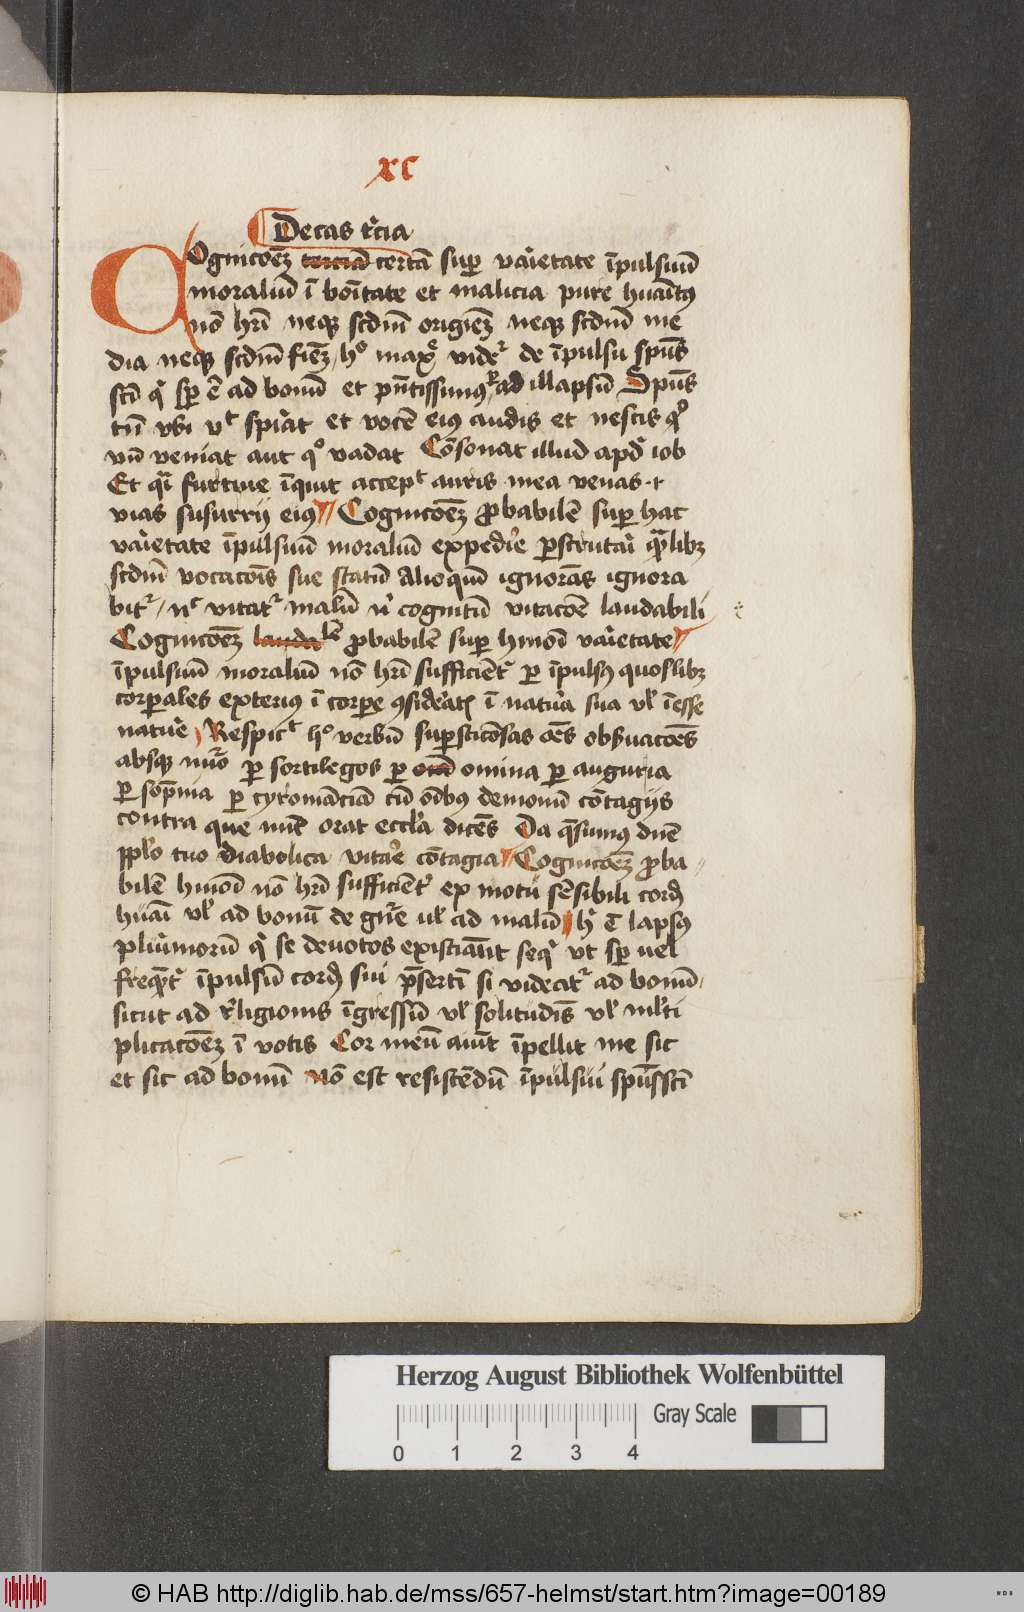 xc
Decas t'cia
Ognicōez̄ terciā certā sup vaīetate īpulsuū
moraliū ī boītate et malicia pure huaītꝰ
nō hr̄i neqꝫ scd̄m origiēz neqꝫ scd̄m me
dia neqꝫ scd̄m fiēz / hº maxᵉ videᷣ de īpulsu spūs
scī qͥ sp ē ad bonū et pn̄tissimꝰ ad illapsū Spūs
tn̄ vbi vlᵗ spirat et vocē eiꝰ audis et nescis
vn̄ veniat aut qº vadat Cōsonat illud apᵈ iob
Et qͣi furtiue īquit accepᵗ auris mea venas
vias susurrij eiꝰ Cognicōez̄ ꝓbabilē sup hac
vaīetate īpulsuū moraliū expedīe ꝑscrutaī qͣlibꝫ
scd̄m vocacōis sue statū Alioquī ignorās ignora
bitᷣ / nᶜ vitatᷣ malū nͥ cognitū vitacōe laudabili
Cognicōez̄ lauda ꝓbabilē sup hmōi vaīetate
īpulsuū moraliū nō hr̄i sufficiēᵗ ꝑ īpulsꝰ quoslibꝫ
corꝑales exteriꝰ ī corꝑe ꝯsideatꝭ ī natura sua vl' īesse
nature Respicᵗ hº verbū supsticōsas oēs obẜuacōes
absqꝫ nūo ꝑ sortilegos ꝑ omina ꝑ auguria
ꝑ sōpnia ꝑ cyromāciā cū oībꝰ demonū cōtagijs
contra que nūc orat eccl'a dicēs Da qͣsumꝰ dn̄e
pp̄lo tuo diabolica vitāe cōtagia Cognicōez̄ ꝓba
bilē hmōi nō hr̄i sufficiēᵗ ex motu sēsibili cordꝭ
huāi vl' ad bonū de gn̄e ul' ad malū hͥ ē lapsꝰ
pliūmorū qͥ se deuotos existiāt seqͥ vt sp vel
freqᵉnt īpulsū cordꝭ sui pͤsertī si videᷣ ad bonū
sicut ad r'ligionis īgressū vl' solitudīs vl' ml'ti
plicacōez̄ ī votis Cor meū aiūt īpellit me sic
et sic ad bonū nō est resistēdū īpulsui spūsscī
Herzog August Bibliothek Wolfenbüttel
Gray Scale
0 1 2 3 4
© HAB http://diglib.hab.de/mss/657-helmst/start.htm?image=00189